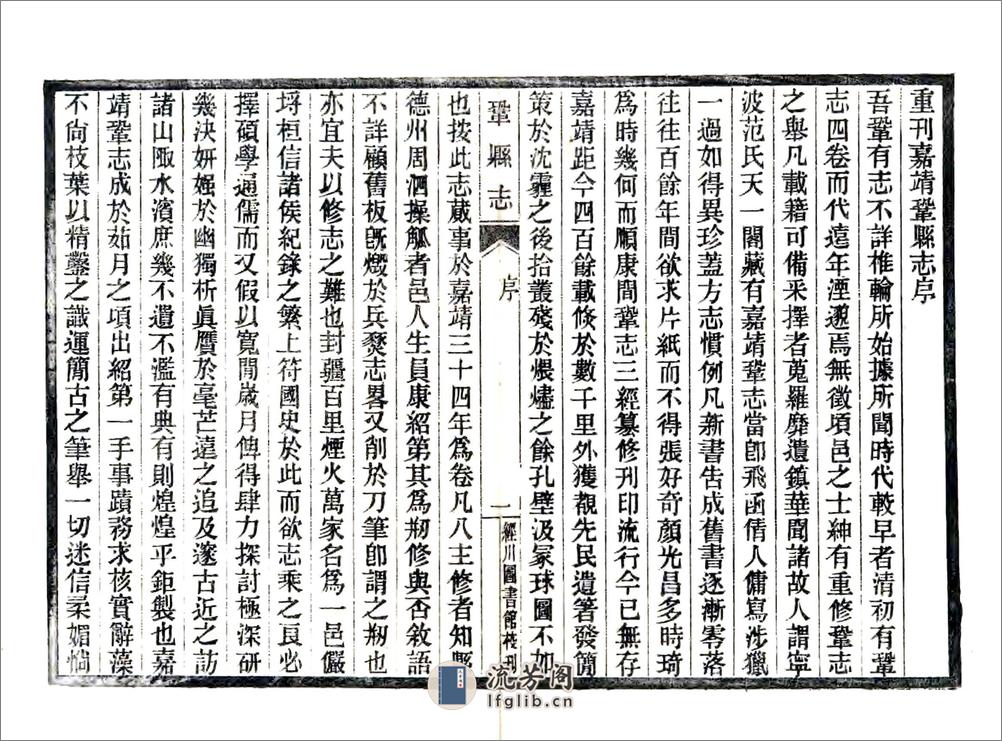 重刊嘉靖鞏縣志序
吾鞏有志不詳椎輪所始據所聞時代較早者清初有鞏
志四卷而代遠年湮邈焉無徵頃邑之士紳有重修鞏志
之舉凡載籍可備采擇者蒐羅靡遺鎮華聞諸故人謂寧
波范氏天一閣藏有嘉靖鞏志當卽飛函倩人傭寫涉獵
一過如得異珍蓋方志慣例凡新書吿成舊書逐漸零落
往往百餘年間欲求片紙而不得張好奇顏光昌多時琦
爲時幾何而順康間鞏志三經纂修刊印流行今已無存
嘉靖距今四百餘載倐於數千里外獲觀先民遺箸發簡
策於沈霾之後拾叢殘於煨燼之餘孔壁汲冢球圖不如
鞏縣志
序
一
經川圖書館校刊
也按此志蕆事於嘉靖三十四年爲卷凡八主修者知縣
德州周泗操觚者邑人生員康紹第其爲剏修與否敘語
不詳顧舊板旣燬於兵燹志畧又削於刀筆卽謂之剏也
亦宜夫以修志之難也封疆百里煙火萬家名爲一邑儼
埒桓信諸侯紀錄之繁上符國史於此而欲志乘之良必
擇碩學通儒而又假以寬閒歲月俾得肆力探討極深硏
幾決姸媸於幽獨析眞贋於毫芒遠之追及邃古近之訪
諸山陬水濱庶幾不遺不濫有典有則煌煌乎鉅製也嘉
靖鞏志成於茹月之頃出紹第一手事蹟務求核實辭藻
不尙枝葉以精鑿之識運簡古之筆舉一切迷信柔媚惝
流芳阁
lfglib.cn